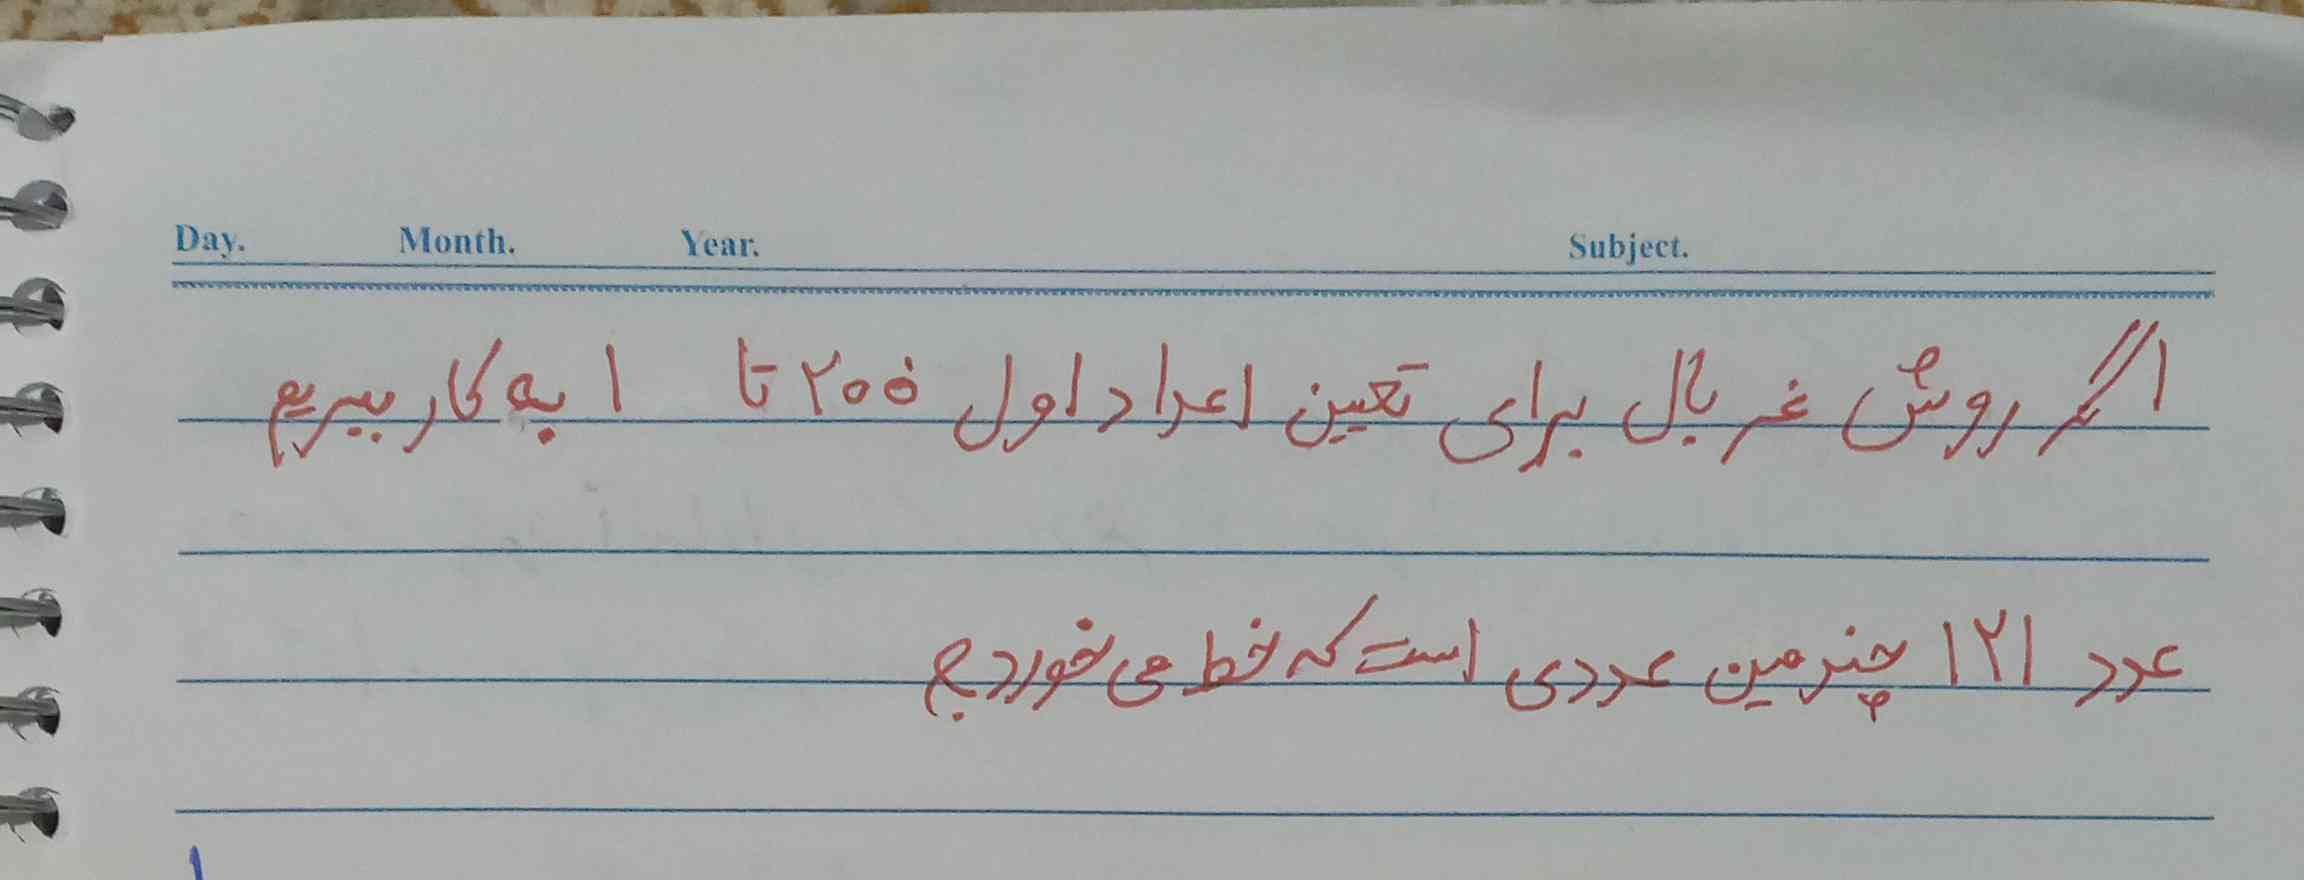 Day. Month. Year. Subject.
اگر روش غربال برای تعیین اعداد اول ۲۰۰ تا ۱ به کار ببریم
عدد ۱۲۱ چندمین عددی است که خط می خورد؟